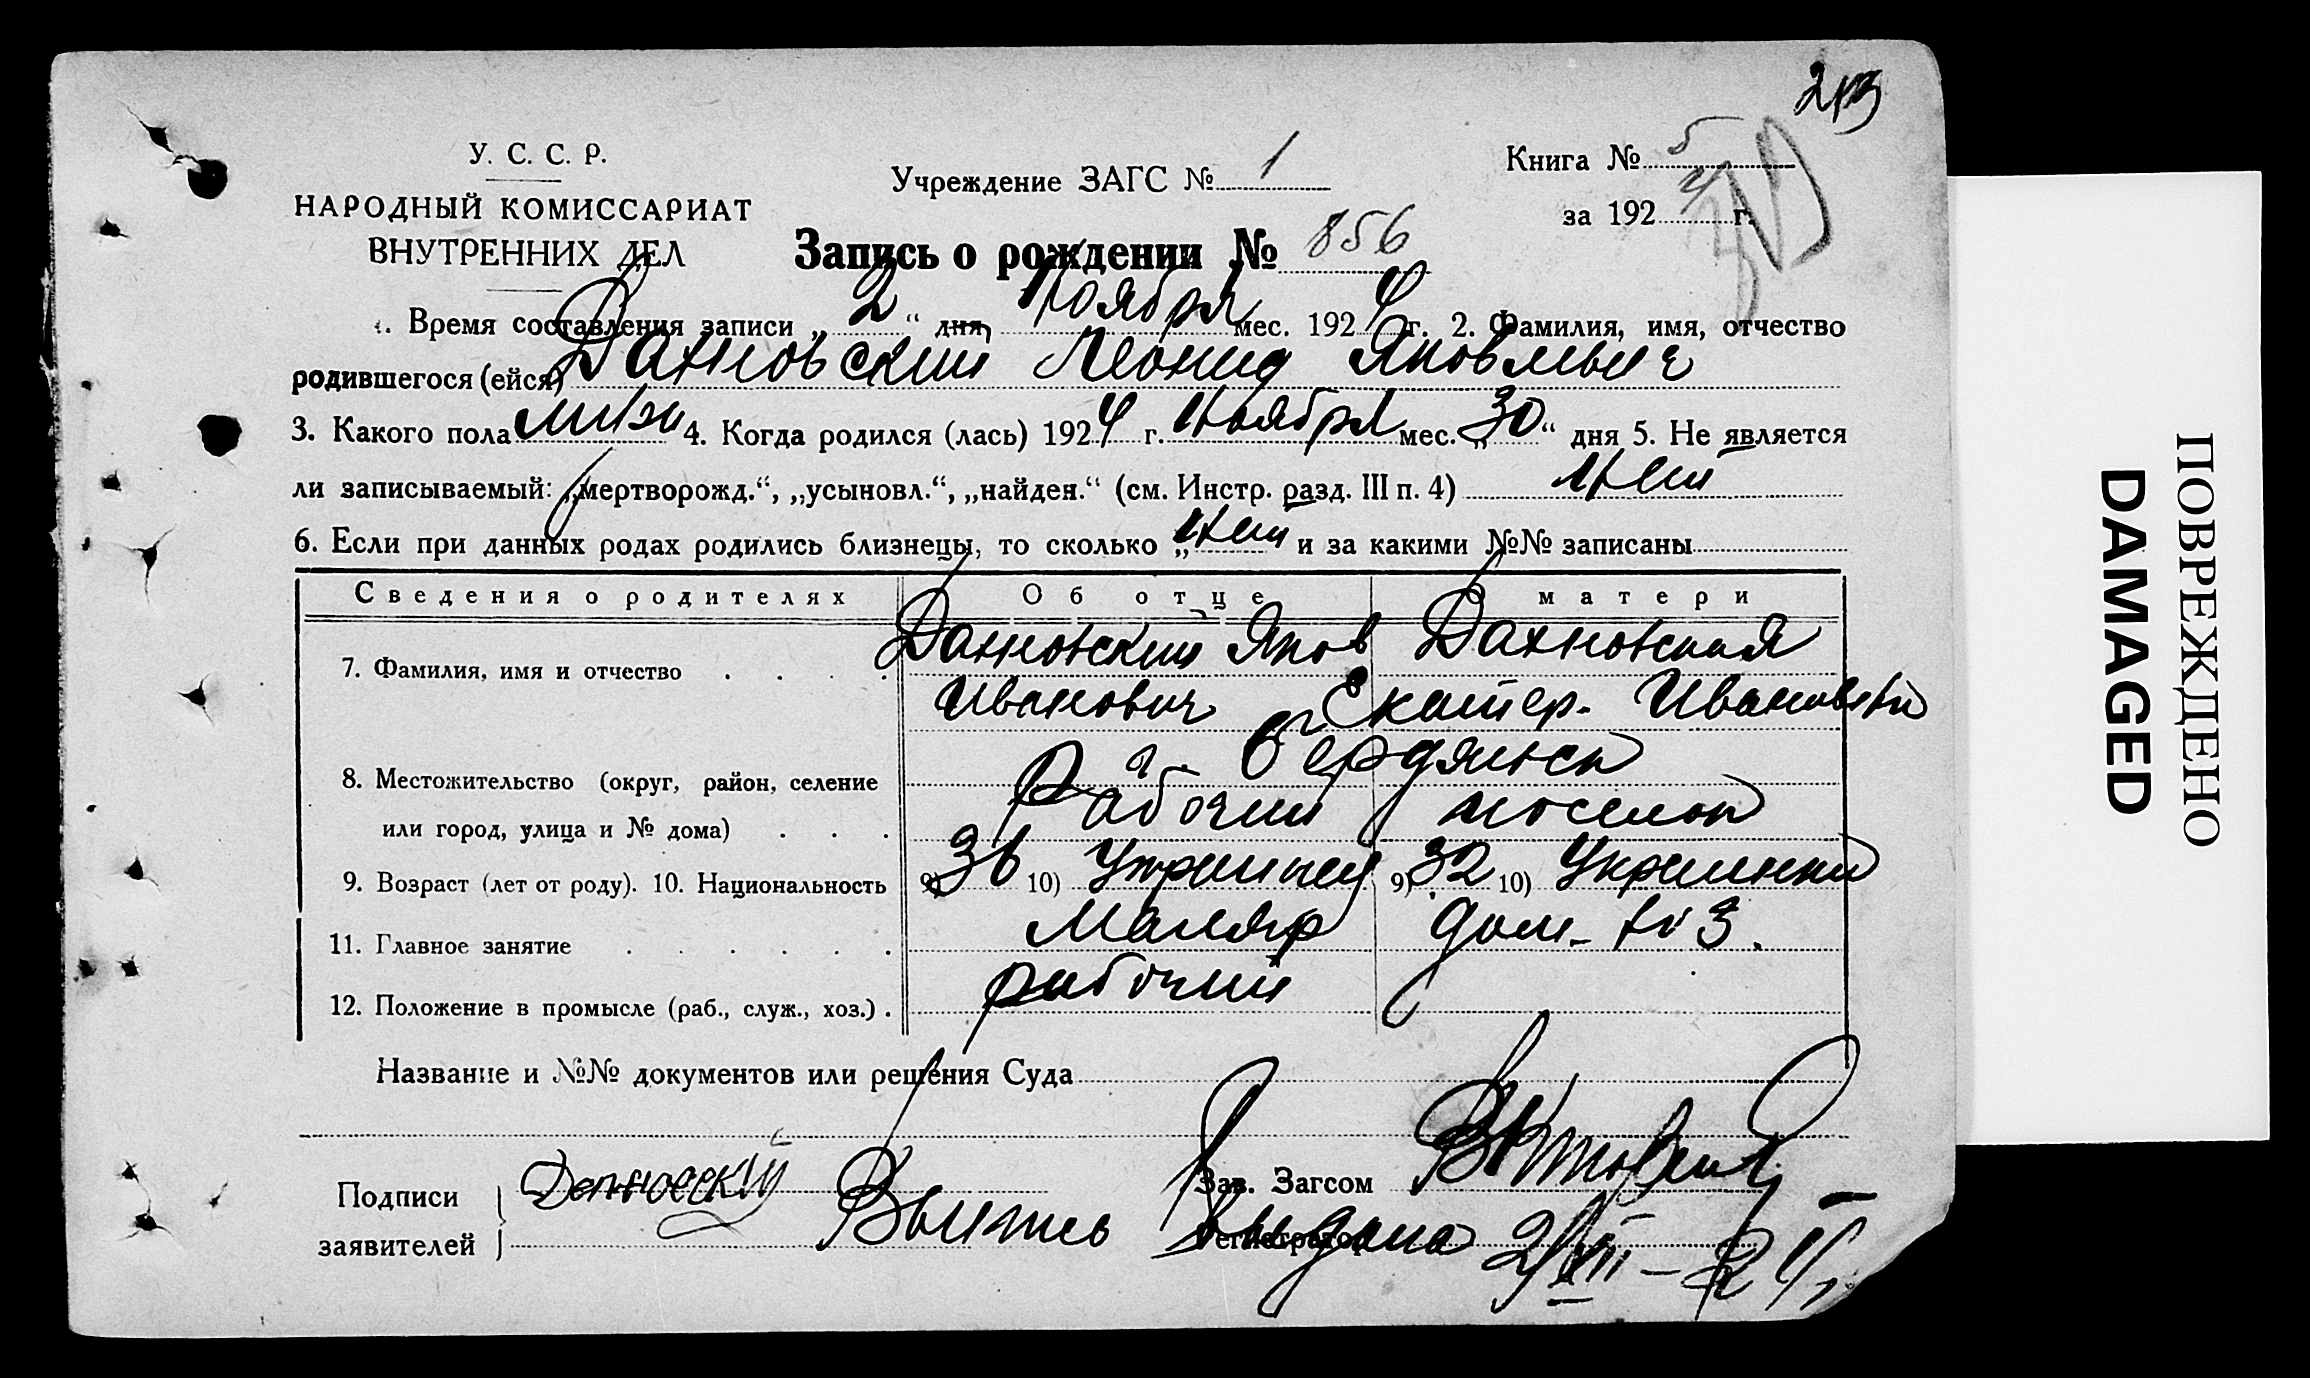 213
У. С. С. Р.
НАРОДНЫЙ КОМИССАРИАТ
ВНУТРЕННИХ ДЕЛ
Учреждение ЗАГС № 1
Книга № 5
за 1924 г.
Запись о рождении № 856
1. Время составления записи „2“ дня Ноября мес. 1924 г. 2. Фамилия, имя, отчество
родившегося (ейся) Дахновский Леонид Яковлевич
3. Какого пола муж 4. Когда родился (лась) 1924 г. Ноября мес. „30“ дня 5. Не является
ли записываемый: „мертворожд.“, „усыновл.“, „найден.“ (см. Инстр. разд. III п. 4) Нет
6. Если при данных родах родились близнецы, то сколько „Нет и за какими №№ записаны
Сведения о родителях Об отце О матери
7. Фамилия, имя и отчество Дахновский Яков Дахновская
Иванович Екатер. Ивановна
8. Местожительство (округ, район, селение г. Бердянск
или город, улица и № дома) Рабочий поселок
9. Возраст (лет от роду). 10. Национальность 9) 36 10) Украинец 9) 32 10) Украинка
11. Главное занятие Маляр дом. хоз.
12. Положение в промысле (раб., служ., хоз.) рабочий
Название и №№ документов или решения Суда
Подписи
заявителей
Зав. Загсом
Регистратор
Выпись выдана 2/XII-24 г.
ПОВРЕЖДЕНО
DAMAGED